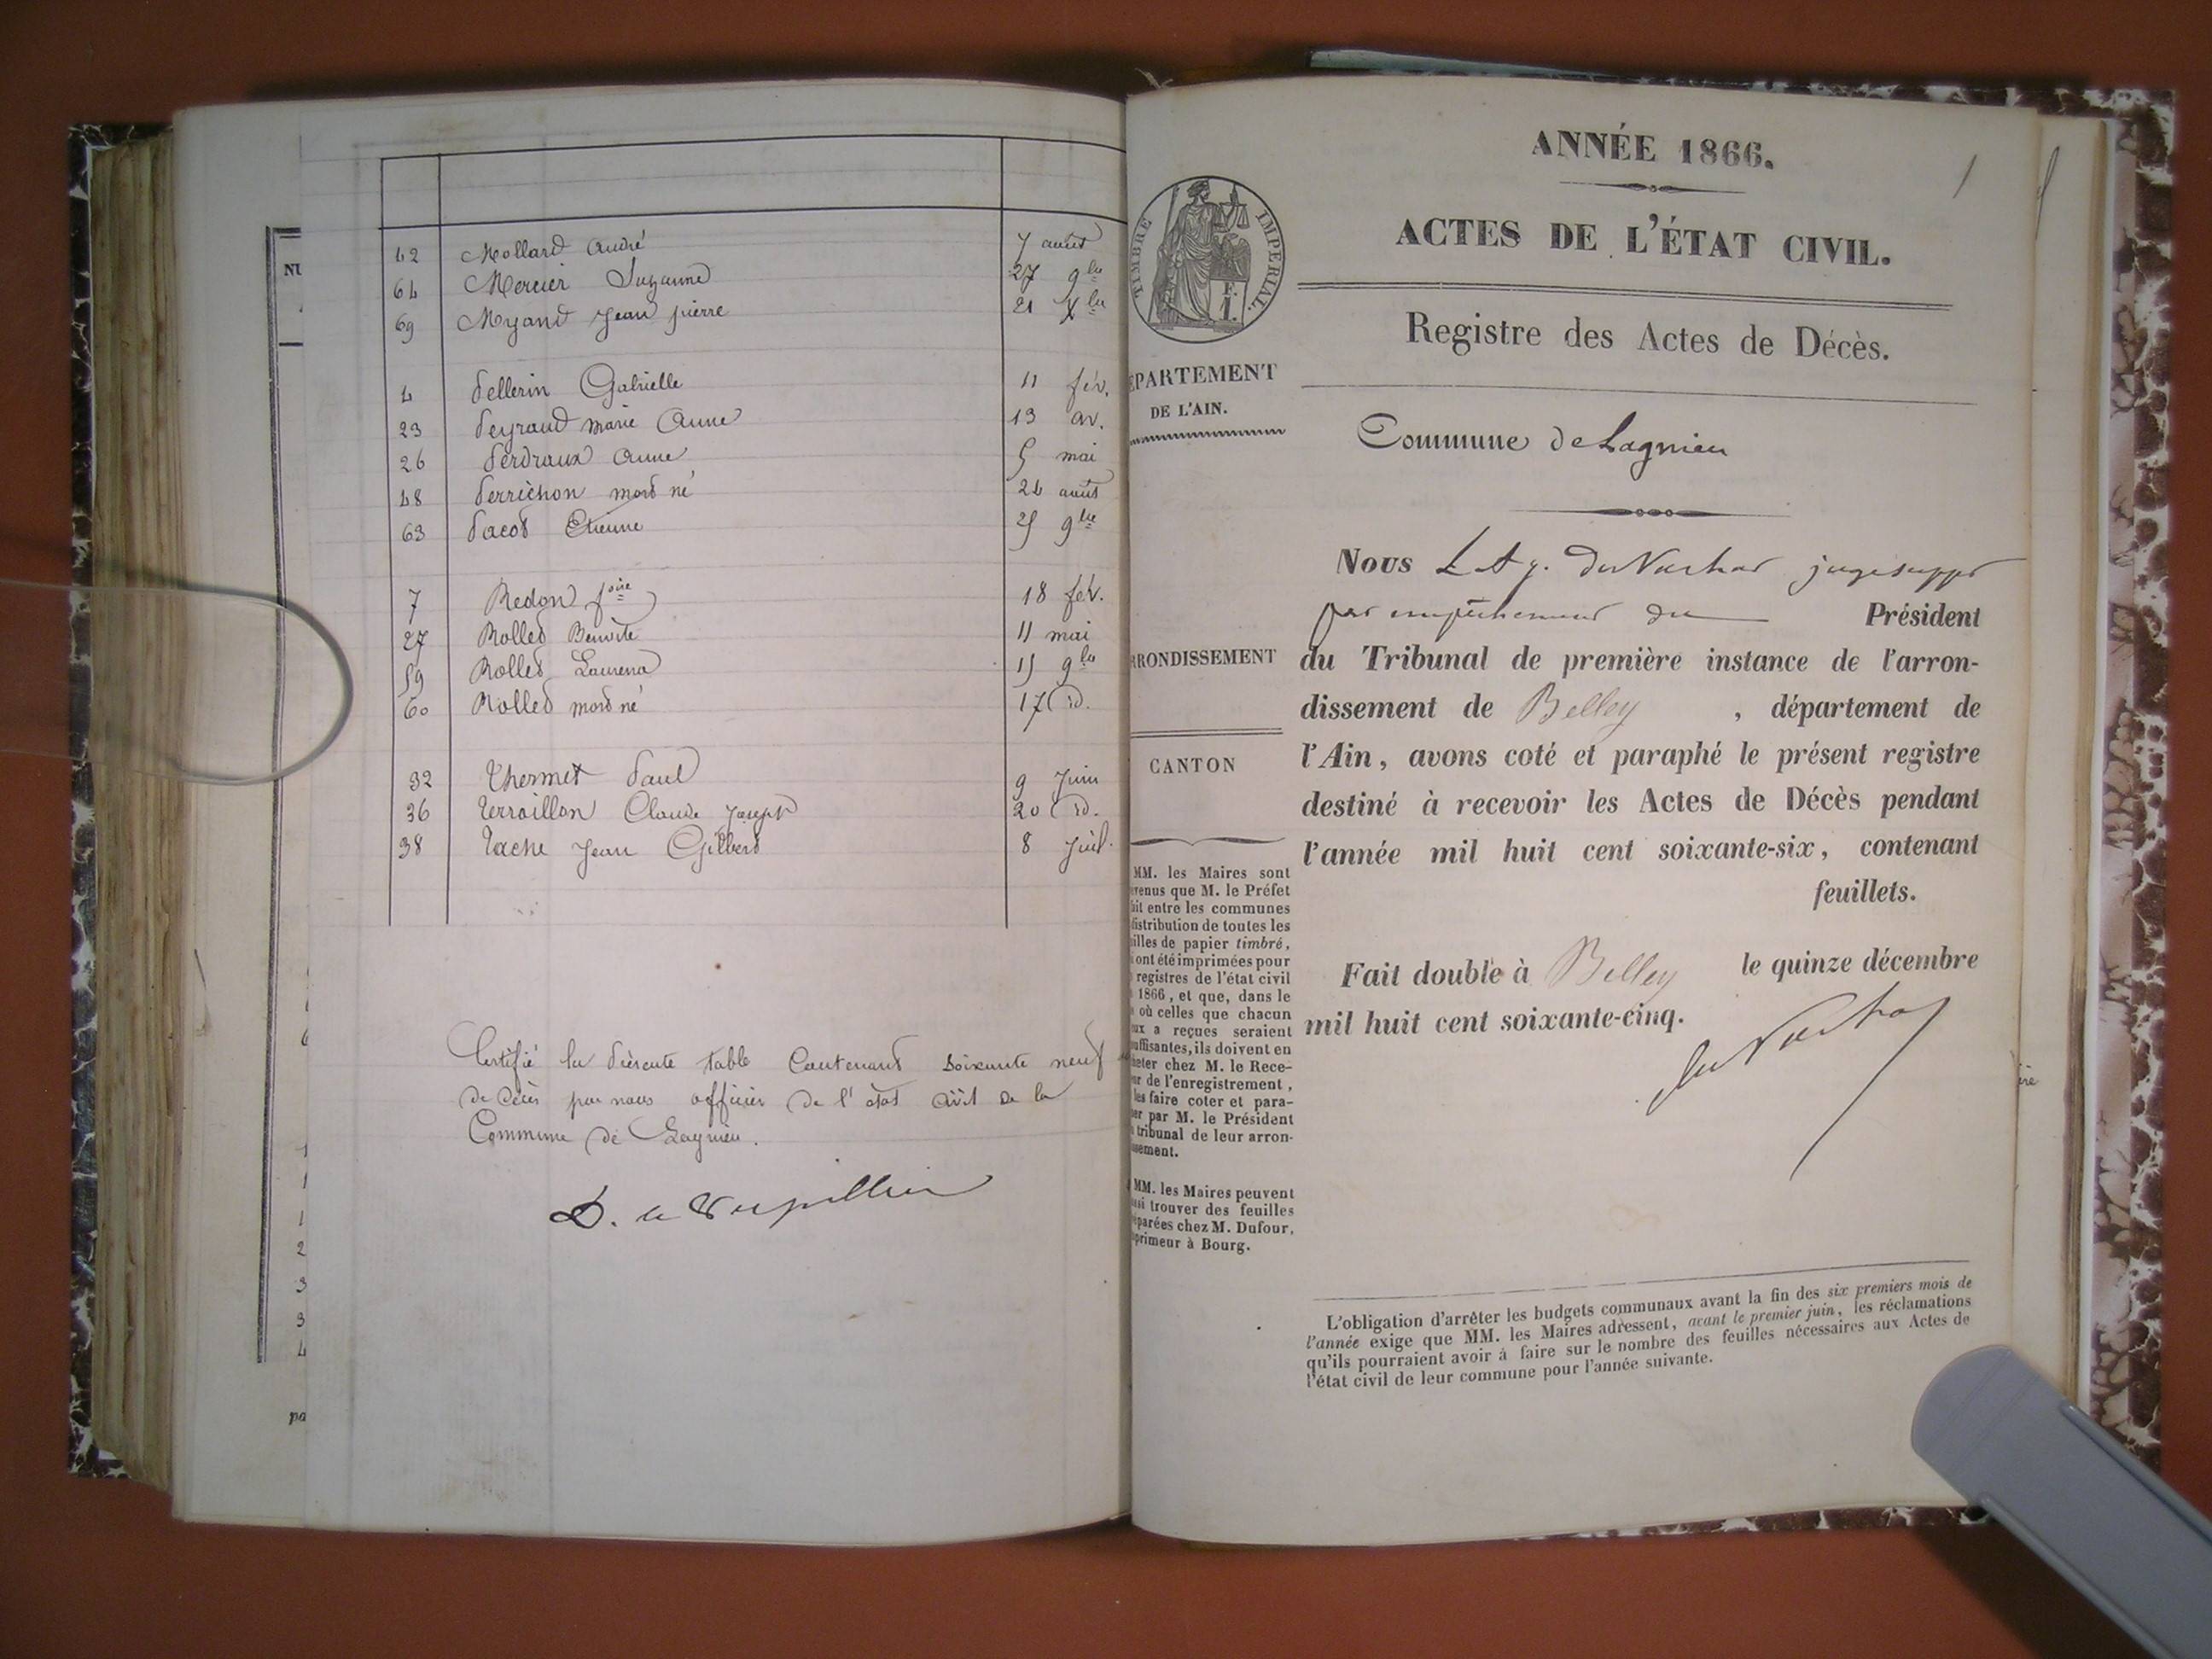 42 Mollard André 7 août
64 Mercier Suzanne 27 9bre
69 Myand Jean pierre 21 Xbre
4 Pellerin Gabrielle 11 fév.
23 Peyraud marie Anne 13 av.
26 Perdraux Anne 5 mai
48 Perrichon mort né 24 août
63 Pacot Etienne 25 9bre
7 Redon 18 fév.
27 Rollet Benoite 11 mai
59 Rollet 15 9bre
60 Rollet mort né 17 id.
32 Thermet Paul 9 Juin
36 Terraillon Claude Joseph 20 id.
38 Tache Jean Gilbert 8 Juil.
Certifié la présente table Contenant Soixante neuf
de Décès par nous officier de l'état civil de la
Commune de Lagnieu.
NU
2
3
3
4
pa
TIMBRE IMPÉRIAL.
F.
1.
ÉPARTEMENT
DE L'AIN.
RRONDISSEMENT
CANTON
MM. les Maires sont
venus que M. le Préfet
ait entre les communes
distribution de toutes les
uilles de papier timbré,
i ont été imprimées pour
registres de l'état civil
1866, et que, dans le
où celles que chacun
ux a reçues seraient
uffisantes, ils doivent en
heter chez M. le Rece-
ur de l'enregistrement,
les faire coter et para-
er par M. le Président
tribunal de leur arron-
ssement.
MM. les Maires peuvent
ssi trouver des feuilles
éparées chez M. Dufour,
primeur à Bourg.
1
ANNÉE 1866.
ACTES DE L'ÉTAT CIVIL.
Registre des Actes de Décès.
Commune de Lagnieu
Nous juge suppt
par empêchement du Président
du Tribunal de première instance de l'arron-
dissement de Belley , département de
l'Ain, avons coté et paraphé le présent registre
destiné à recevoir les Actes de Décès pendant
l'année mil huit cent soixante-six, contenant
feuillets.
Fait double à Belley le quinze décembre
mil huit cent soixante-cinq.
L'obligation d'arrêter les budgets communaux avant la fin des six premiers mois de
l'année exige que MM. les Maires adressent, avant le premier juin, les réclamations
qu'ils pourraient avoir à faire sur le nombre des feuilles nécessaires aux Actes de
l'état civil de leur commune pour l'année suivante.